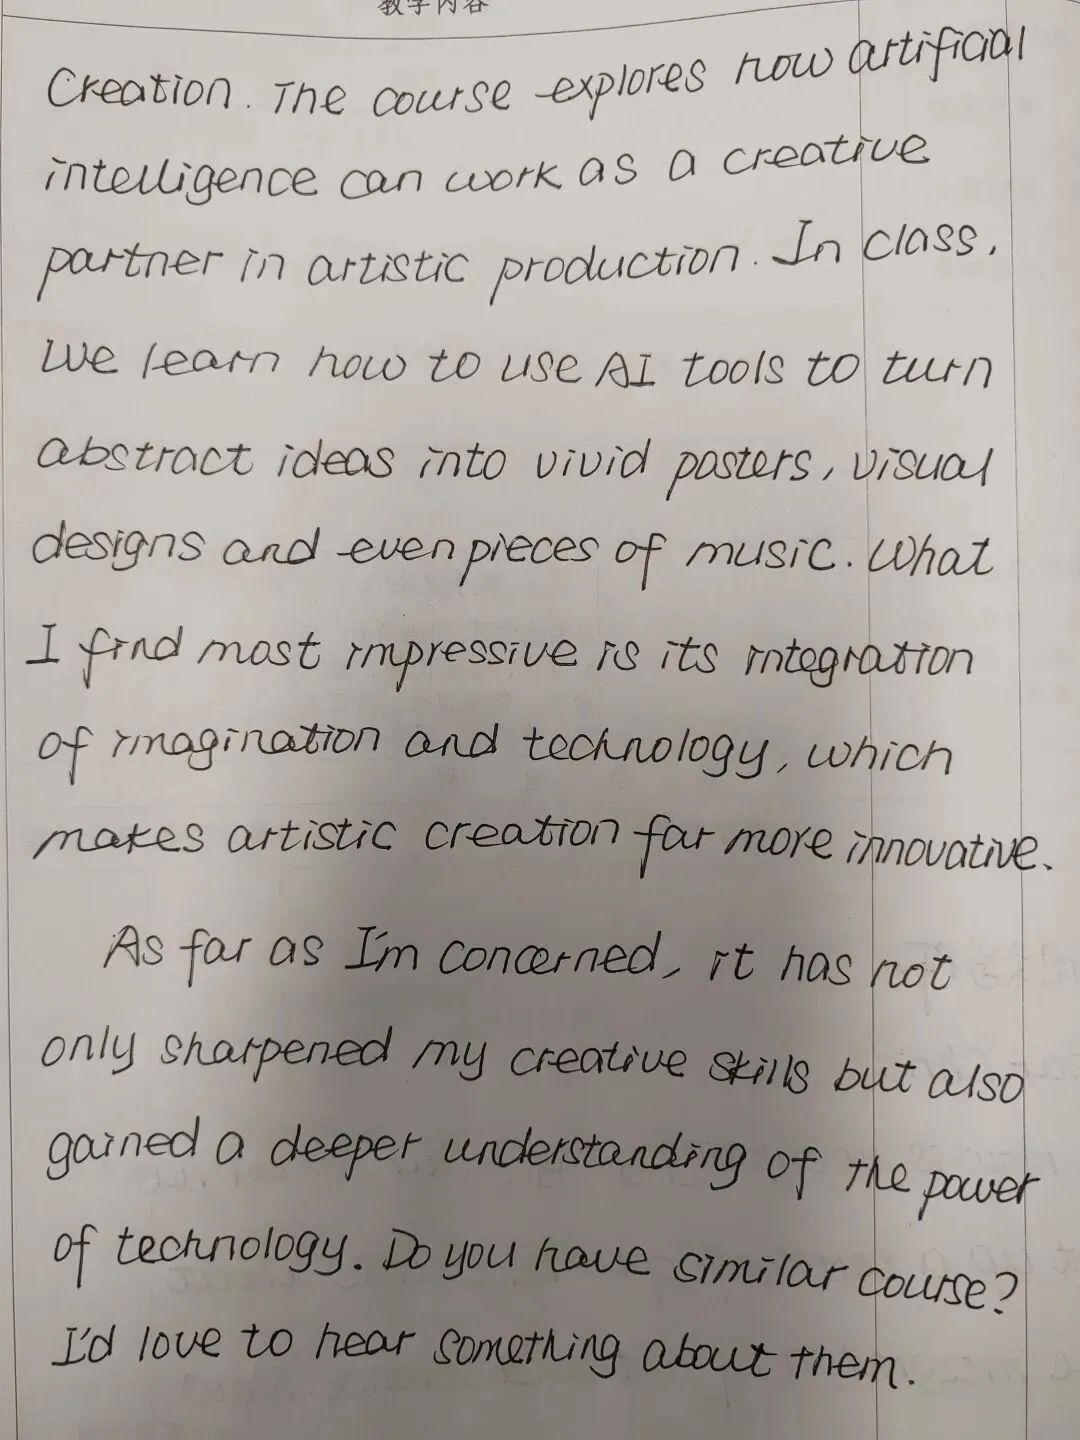 教学内容
Creation. The course explores how artificial
intelligence can work as a creative
partner in artistic production. In class,
we learn how to use AI tools to turn
abstract ideas into vivid posters, visual
designs and even pieces of music. What
I find most impressive is its integration
of imagination and technology, which
makes artistic creation far more innovative.
As far as I'm concerned, it has not
only sharpened my creative skills but also
gained a deeper understanding of the power
of technology. Do you have similar course?
I'd love to hear something about them.